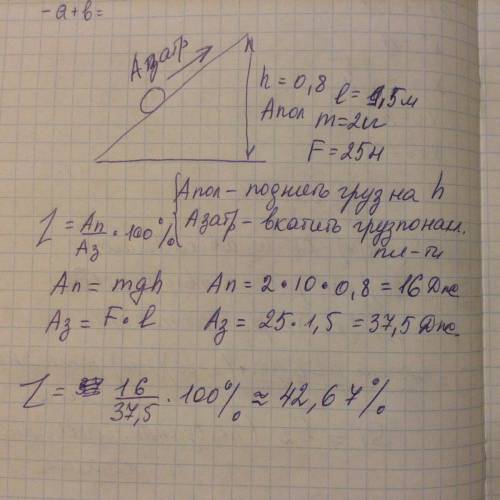 -a+b=
Азатр
h=0,8
l=1,5м
Апол
m=2кг
F=25Н
Апол - поднять груз на h
η = Ап/Аз · 100%
Азатр - вкатить груз по накл. пл-ти
Ап = mgh Ап = 2·10·0,8 = 16 Дж
Аз = F·l Аз = 25·1,5 = 37,5 Дж.
η = 16/37,5 · 100% ≈ 42,67%